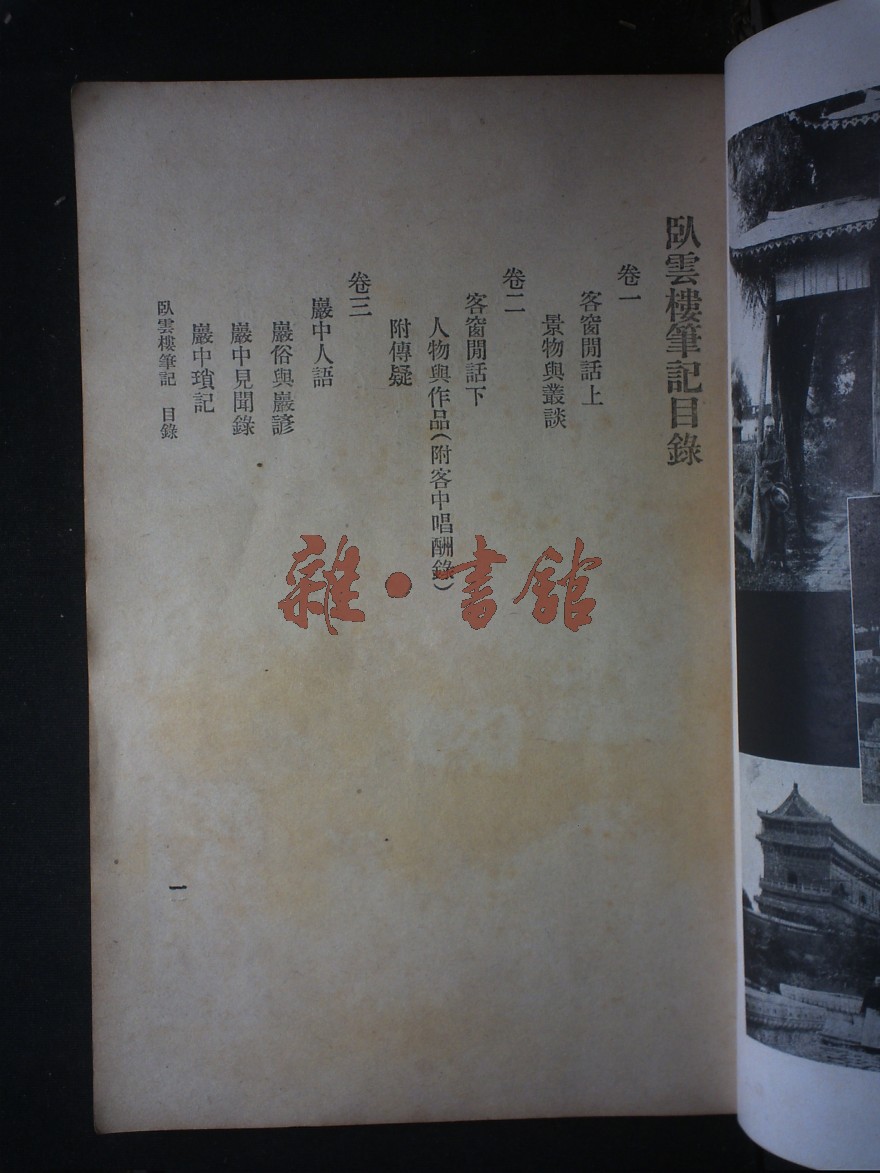 臥雲樓筆記目錄
卷一
客窗閒話上
景物與叢談
卷二
客窗閒話下
人物與作品(附客中唱酬錄)
附傳疑
卷三
巖中人語
巖俗與巖諺
巖中見聞錄
巖中瑣記
臥雲樓筆記 目錄
一
雜·書館